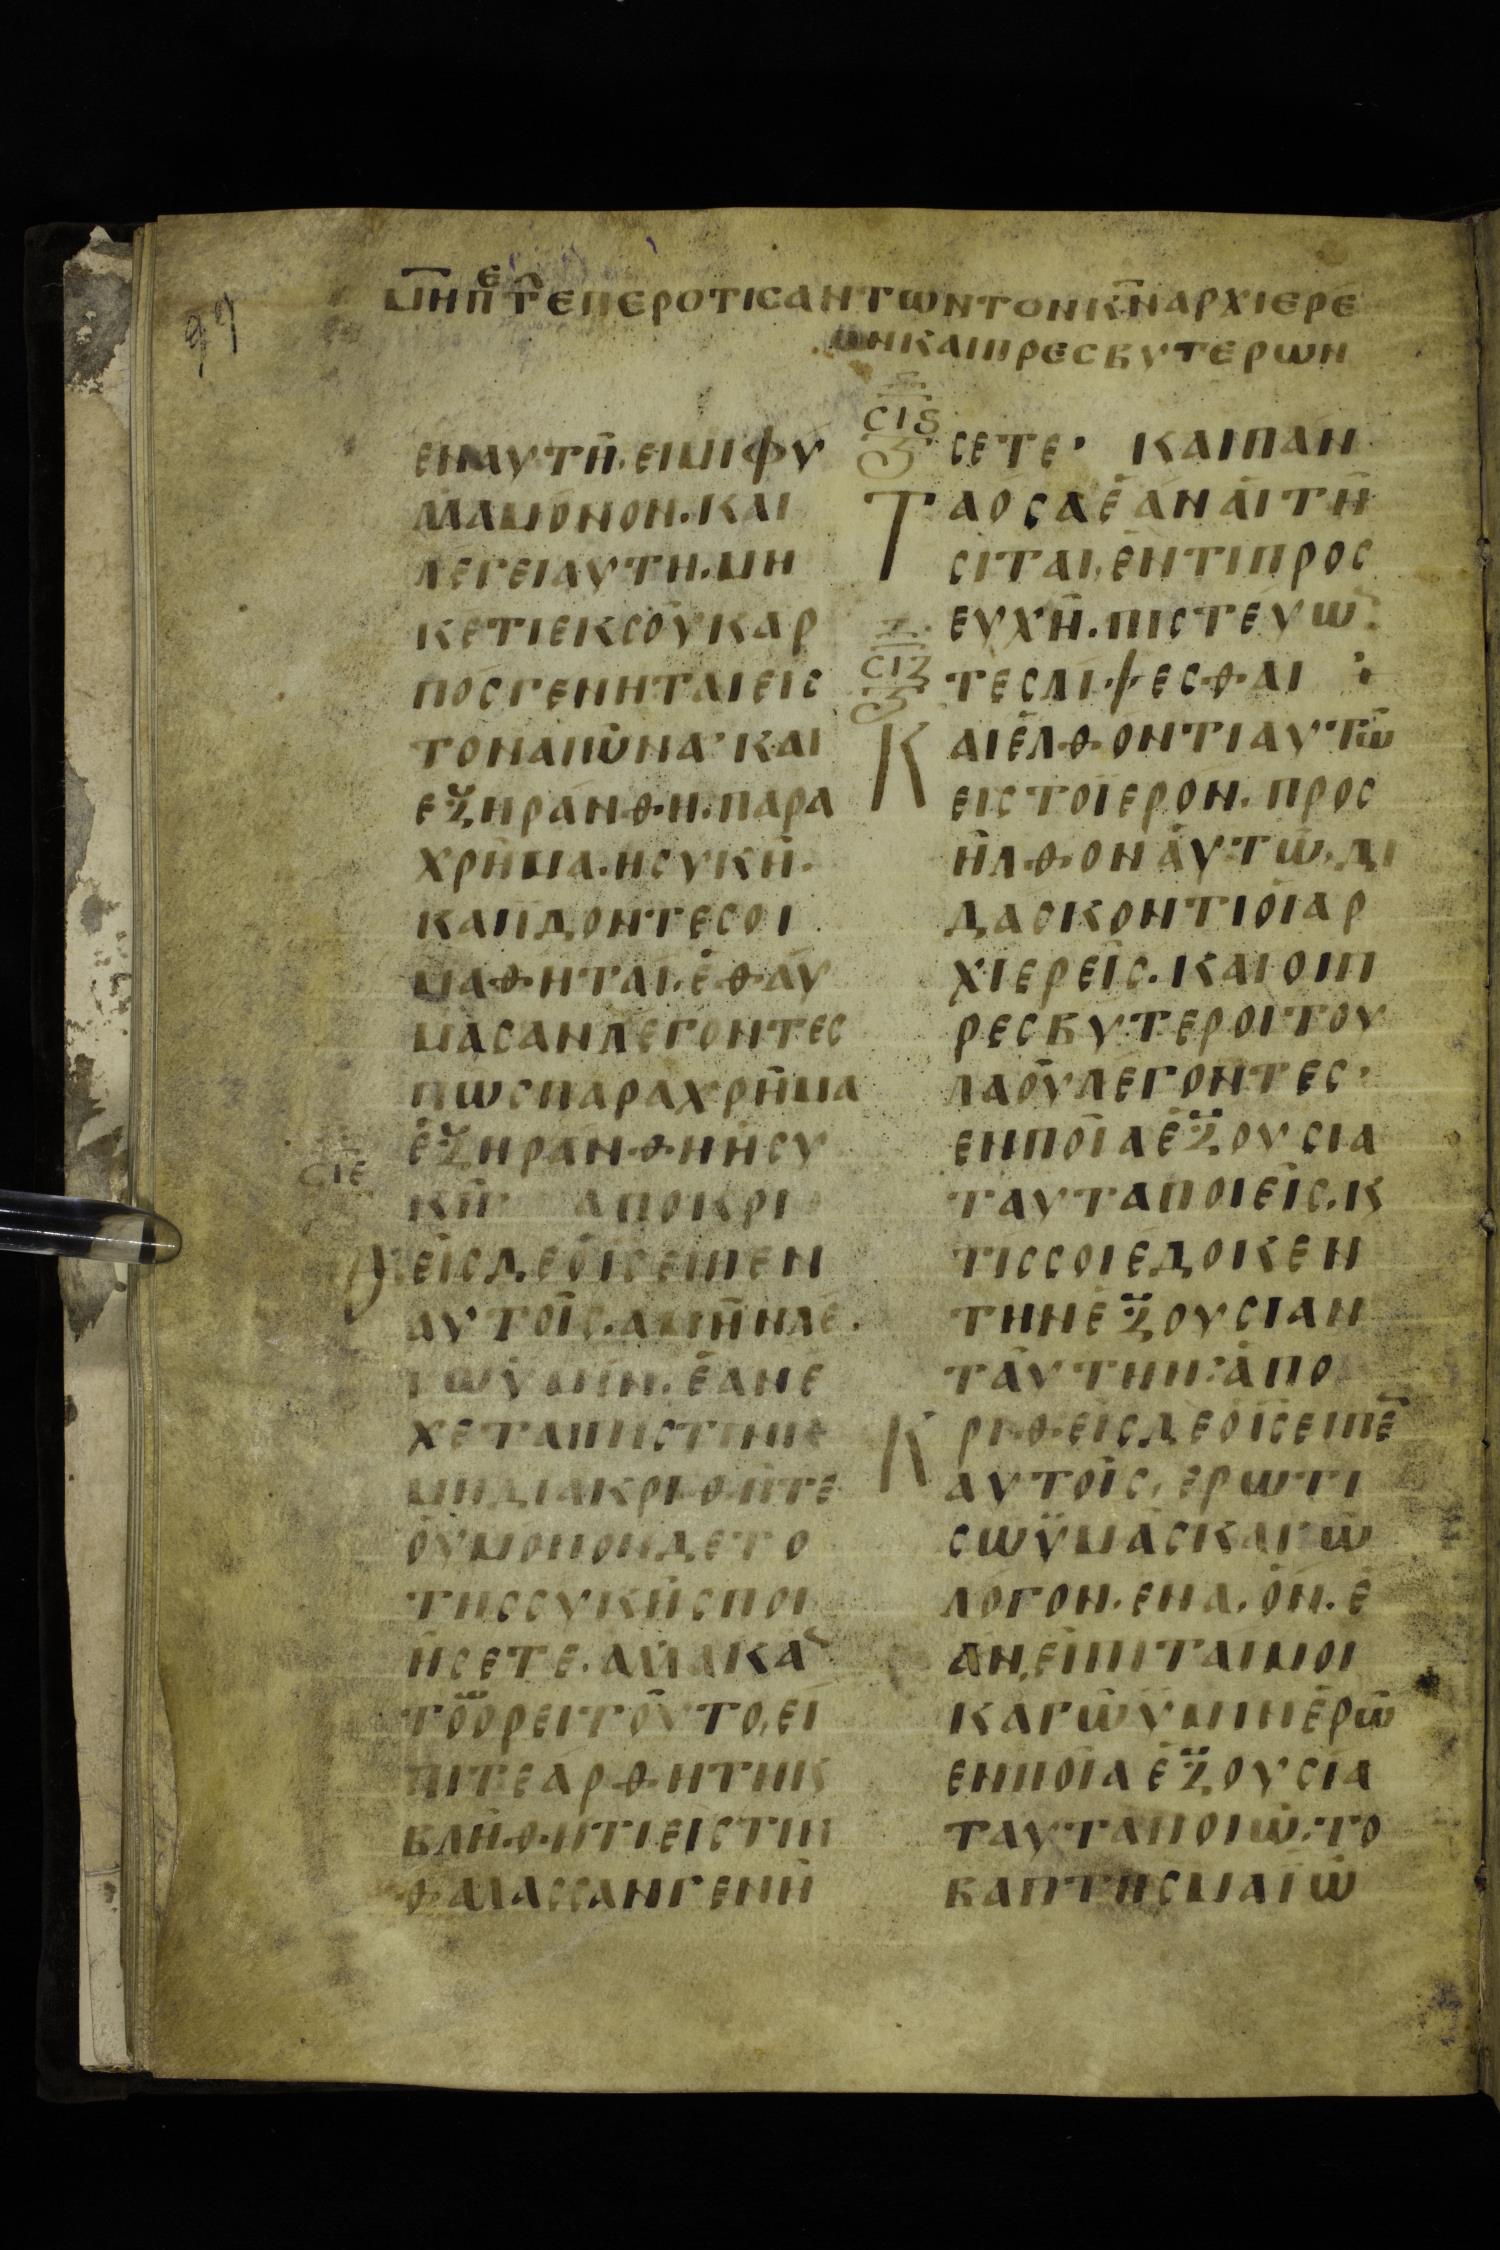 99
ΜΗ ΠΕΤΕΠΕΡΟΤΙСΑΝΤΩΝΤΟΝΚ̅Ν̅ΑΡΧΙΕΡΕ
ΩΝΚΑΙΠΡΕСΒΥΤΕΡΩΝ
ΕΝΑΥΤΗ.ΕΙΜΙΦΥ
ΛΛΑΜΟΝΟΝ.ΚΑΙ
ΛΕΓΕΙΑΥΤΗ.ΜΗ
ΚΕΤΙΕΚСΟΥΚΑΡ
ΠΟСΓΕΝΗΤΑΙΕΙС
ΤΟΝΑΙΩΝΑ·ΚΑΙ
ΕΞΗΡΑΝΘΗ.ΠΑΡΑ
ΧΡΗΜΑ.ΗСΥΚΗ.
ΚΑΙΪΔΟΝΤΕСΟΙ
ΜΑΘΗΤΑΙ.ΕΘΑΥ
ΜΑСΑΝΛΕΓΟΝΤΕС
ΠΩСΠΑΡΑΧΡΗΜΑ
ΕΞΗΡΑΝΘΗΗСΥ
СΙΕ
ΚΗ· ΑΠΟΚΡΙ
ΘΕΙСΔΕΟΙ̅С̅ΕΙΠΕΝ
ΑΥΤΟΙС.ΑΜΗΝΛΕ
ΓΩΥΜΙΝ.ΕΑΝΕ
ΧΕΤΑΙΠΙСΤΗΝΚ
ΜΗΔΙΑΚΡΙΘΗΤΕ
ΟΥΜΟΝΟΝΔΕΤΟ
ΤΗССΥΚΗСΠΟΙ
ΗСΕΤΕ.ΑΛΛΑΚΑ
ΤΟΟΡΕΙΤΟΥΤΟ,ΕΙ
ΠΙΤΕΑΡΘΗΤΗΚ
ΒΛΗΘΗΤΙΕΙСΤΗΝ
ΘΑΛΑССΑΝΓΕΝΗ
СΙϚ
СΕΤΕ· ΚΑΙΠΑΝ
ΤΑΟСΑΕΑΝΑΙΤΗ
СΙΤΑΙ,ΕΝΤΙΠΡΟС
ΕΥΧΗ.ΠΙСΤΕΥΩ
СΙΖ
ΤΕСΛΙΨΕСΘΑΙ :
ΚΑΙΕΛΘΟΝΤΙΑΥΤΩ
ΕΙСΤΟΪΕΡΟΝ.ΠΡΟС
ΗΛΘΟΝΑΥΤΩ.ΔΙ
ΔΑСΚΟΝΤΙΟΙΑΡ
ΧΙΕΡΕΙС.ΚΑΙΟΙΠ
ΡΕСΒΥΤΕΡΟΙΤΟΥ
ΛΑΟΥΛΕΓΟΝΤΕС·
ΕΝΠΟΙΑΕΞΟΥСΙΑ
ΤΑΥΤΑΠΟΙΕΙС.Κ
ΤΙССΟΙΕΔΟΚΕΝ
ΤΗΝΕΞΟΥСΙΑΝ
ΤΑΥΤΗΝ:ΑΠΟ
ΚΡΙΘΕΙСΔΕΟΙ̅С̅ΕΙΠΕ̅
ΑΥΤΟΙС,ΕΡΩΤΙ
СΩΫΜΑСΚΑΓΩ
ΛΟΓΟΝ.ΕΝΑ.ΟΝ.Ε
ΑΝ,ΕΙΠΙΤΑΙΜΟΙ
ΚΑΓΩΥΜΙΝΕΡΩ
ΕΝΠΟΙΑΕΞΟΥСΙΑ
ΤΑΥΤΑΠΟΙΩ:ΤΟ
ΒΑΠΤΗСΜΑΪΩ